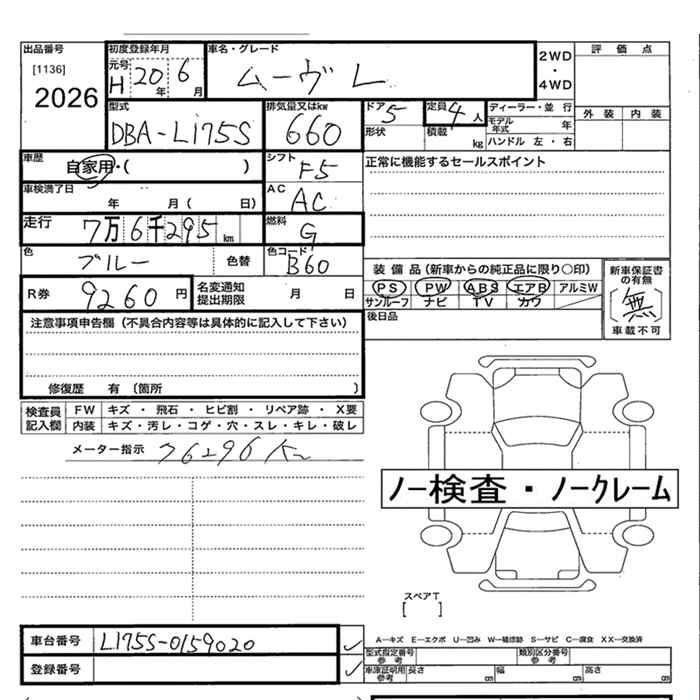 出品番号 初度登録年月 車名・グレード 評価点
[1136] 元号 2WD
2026 H 20年 6月 ムーヴ L ・
4WD
型式 排気量又はkw ドア 5 定員 4人 ディーラー・並 行 外装 内装
DBA-L175S 660 形状 積載 kg モデル年式 年
ハンドル 左・右
車歴 自家用・( ) シフト F5 正常に機能するセールスポイント
車検満了日 年 月( 日) AC AC
走行 7万6千295km 燃料 G
色 ブルー 色替 色コード B60 装備品(新車からの純正品に限り○印) 新車保証書の有無
R券 9260円 名変通知提出期限 月 日 PS PW ABS エアB アルミW 〔無〕
サンルーフ ナビ TV カワ 車載不可
注意事項申告欄(不具合内容等は具体的に記入して下さい) 後日品
修復歴 有 〔箇所 〕
検査員記入欄 FW キズ ・ 飛石 ・ ヒビ割 ・ リペア跡 ・ X要
内装 キズ・汚レ・コゲ・穴・スレ・キレ・破レ
メーター指示 76296 K
ノー検査・ノークレーム
スペアT
[ ]
車台番号 L175S-0159020 A―キズ E―エクボ U―凹み W―補修跡 S―サビ C―腐食 XX―交換済
型式指定番号 参考 類別区分番号 参考
登録番号 車庫証明用 参考 長さ cm 幅 cm 高さ cm